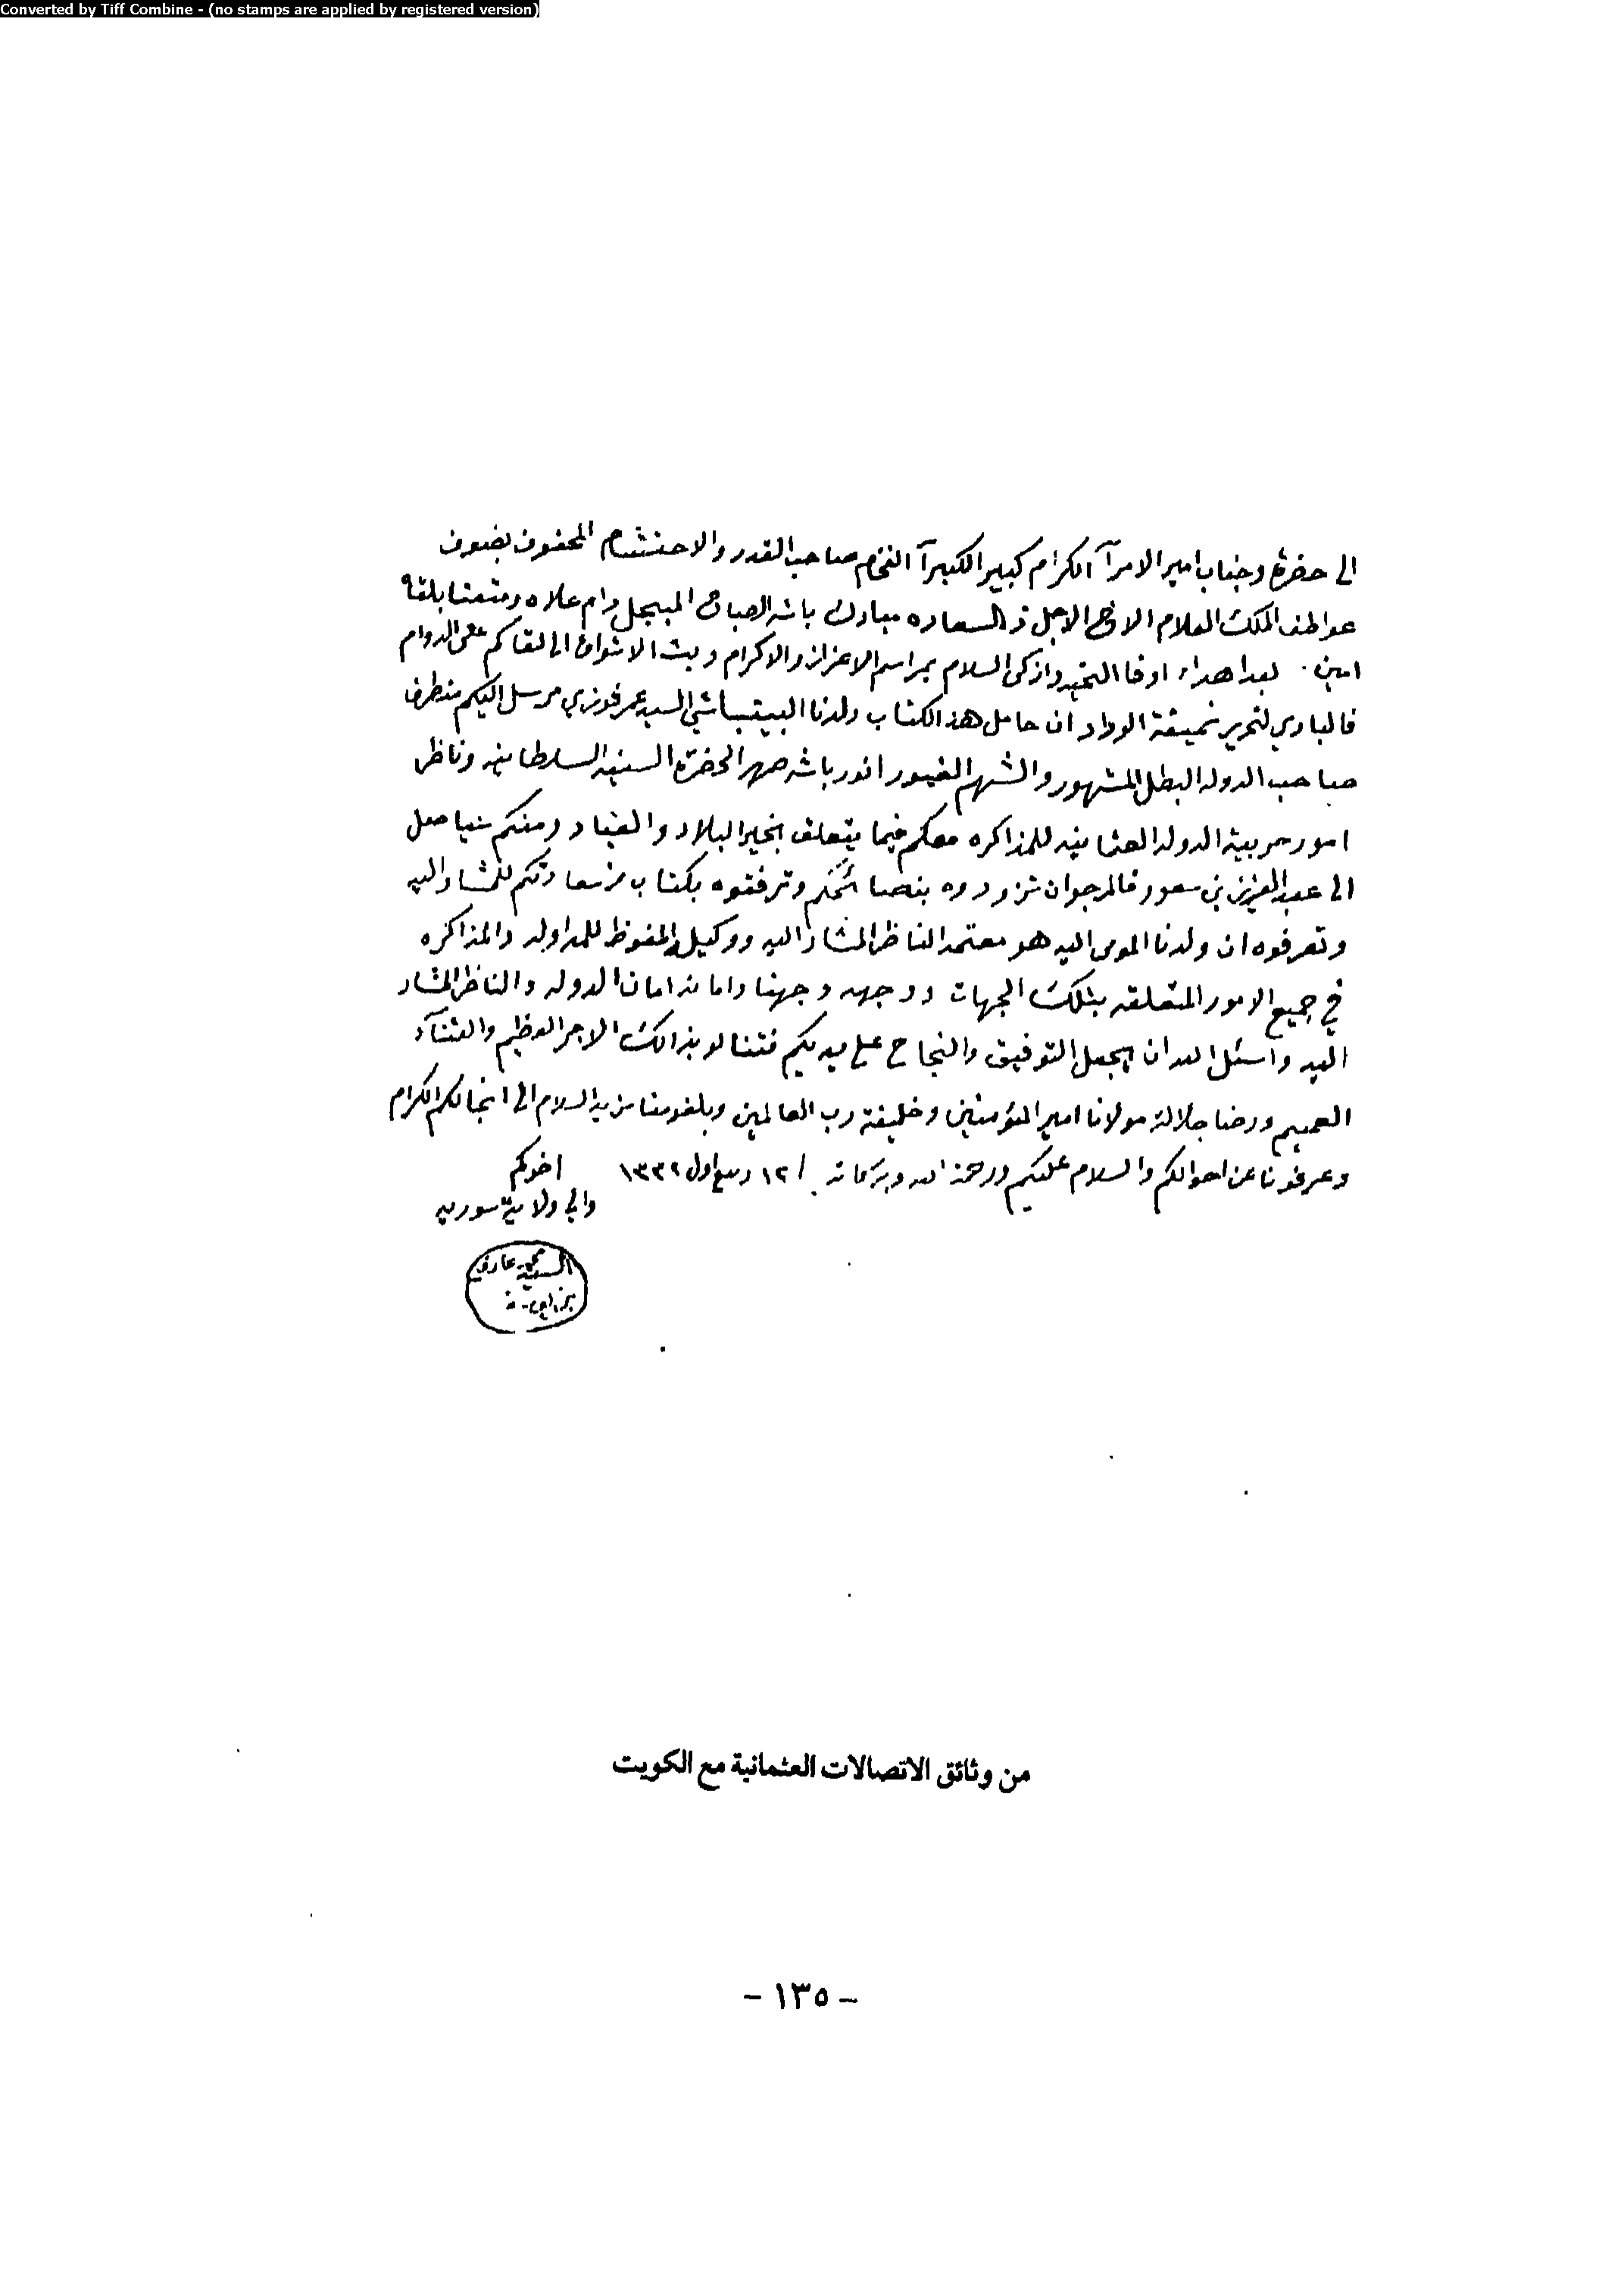 Converted by Tiff Combine - (no stamps are applied by registered version)
الى حضرة وجناب امير الامرآ الكرام كبير الكبرآ الفخام صاحب القدر والاحتشام المحفوف بضيوف
عواطف الملك العلام الاخ الاجل ذي السعاده مبارك باشه الصباح المبجل دام علاه ومتعنا بلقاه
امين . بعد اهداء اوفا التحيه وازكى السلام بمراسم الاعزاز والاكرام وبث الاشواق الى لقاكم على الدوام
فالبادي لتحرير نميقة الوداد ان حامل هذ الكتاب ولدنا البيتباشي السيد عمر فوزي مرسل اليكم منطرف
صاحب الدوله البطل المشهور والشهم الغيور انور باشه صهر الحضرة السنيه السلطانيه وناظر
امور حربية الدوله العثمانيه للمذاكره معكم فيما يتعلق بخير البلاد والعباد ومنكم
الى عبد العزيز بن سعود فالمرجوان تزودوه بنصائحكم وترفقوه بكتاب من سعادتكم للمشار اليه
وتعرفوه ان ولدنا المومى اليه هو معتمد الناظر المشار اليه ووكيله المفوظ للمداوله والمذاكره
في جميع الامور المتعلقه بتلك الجهات ووجهه وجهنا وامانه امان الدوله والناظر المشار
اليه واسئل الله ان يجعل التوفيق والنجاح على يديكم فتنالو بذالك الاجر العظيم والثنآء
العميم ورضا جلالة مولانا امير المؤمنين وخليفة رب العالمين وبلغو منا مزيد السلام الى انجالكم الكرام
وعرفونا عن احوالكم والسلام عليكم ورحمة الله وبركاته . / ١٢ ربيع اول ١٣٣٢ اخوكم
والي ولاية سوريه
السيد محمد عارف
من وثائق الاتصالات العثمانية مع الكويت
- ١٣٥ -